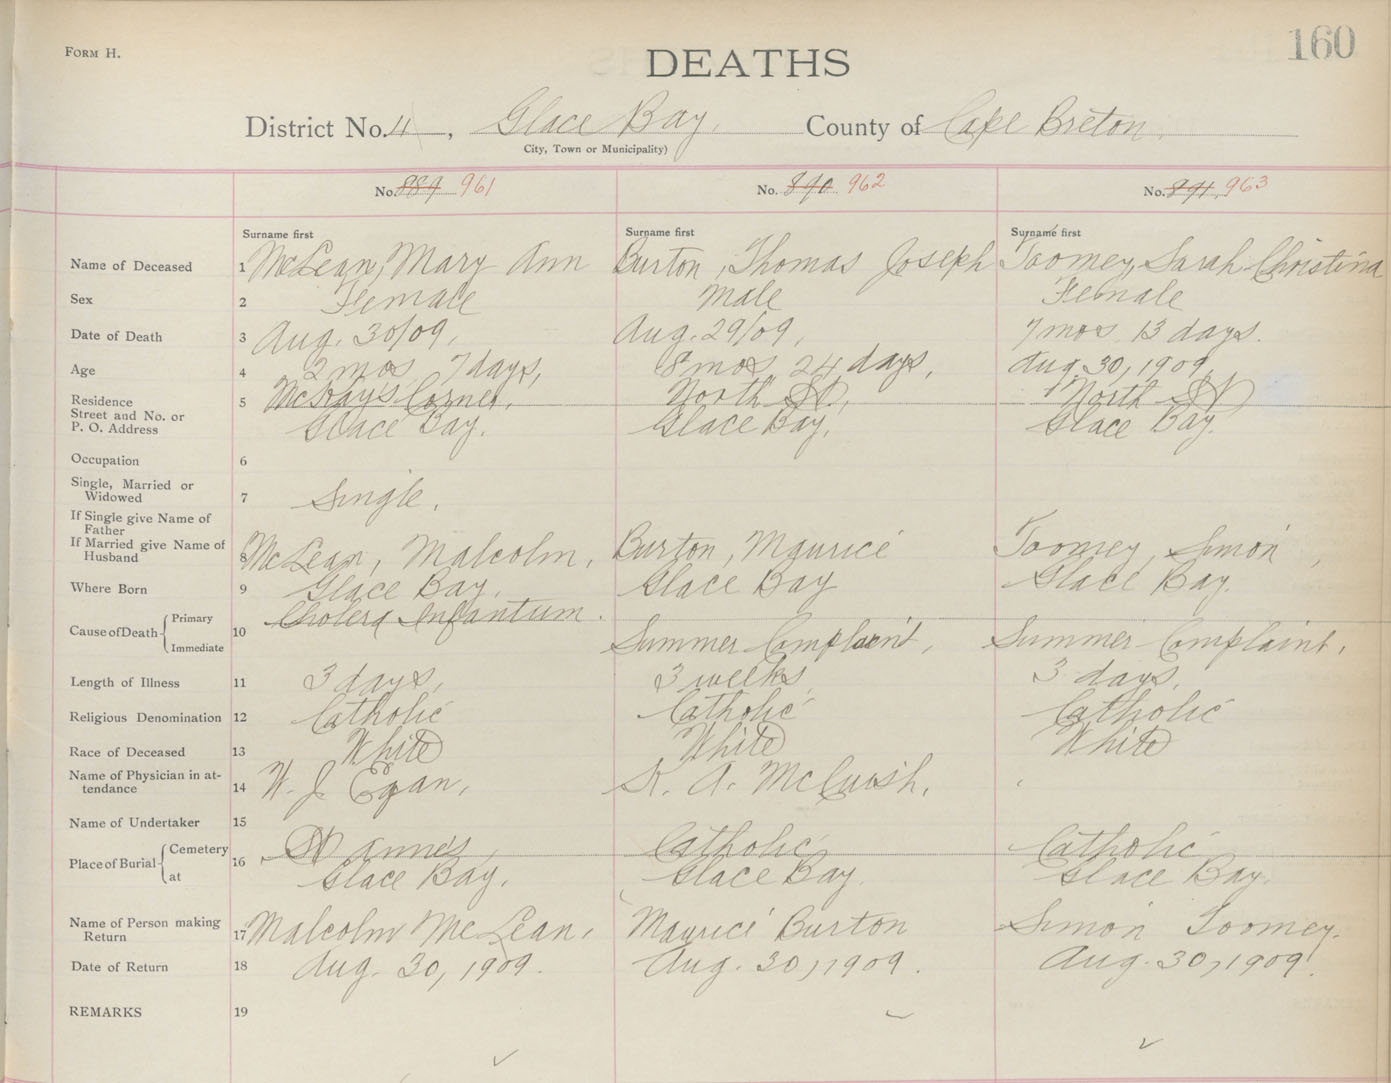 FORM H.
160
DEATHS
District No. 4, Glace Bay. County of Cape Breton.
City, Town or Municipality)
No. 889 961 No. 890 962 No. 891 963
Surname first Surname first Surname first
Name of Deceased 1 McLean, Mary Ann Burton, Thomas Joseph Toomey, Sarah Christina
Sex 2 Female Male Female
Date of Death 3 Aug. 30/09. Aug. 29/09. 7 mos 13 days.
Age 4 2 mos 7 days, 8 mos. 24 days. Aug 30, 1909
Residence 5 McKay's Corner, North St, North St
Street and No. or
P. O. Address Glace Bay. Glace Bay. Glace Bay.
Occupation 6
Single, Married or
Widowed 7 Single.
If Single give Name of
Father
If Married give Name of
Husband 8 McLean, Malcolm, Burton, Maurice Toomey, Simon,
Where Born 9 Glace Bay. Glace Bay Glace Bay.
Cause of Death Primary 10 Cholera Infantum.
Immediate Summer Complaint, Summer Complaint,
Length of Illness 11 3 days, 3 weeks, 3 days,
Religious Denomination 12 Catholic Catholic Catholic
Race of Deceased 13 White White White
Name of Physician in at-
tendance 14 W. J. Egan,
Name of Undertaker 15
Place of Burial Cemetery 16 St Anne's, Catholic, Catholic
at Glace Bay. Glace Bay. Glace Bay.
Name of Person making
Return 17 Malcolm McLean, Maurice Burton Simon Toomey.
Date of Return 18 Aug. 30, 1909. Aug. 30, 1909. Aug. 30, 1909.
REMARKS 19